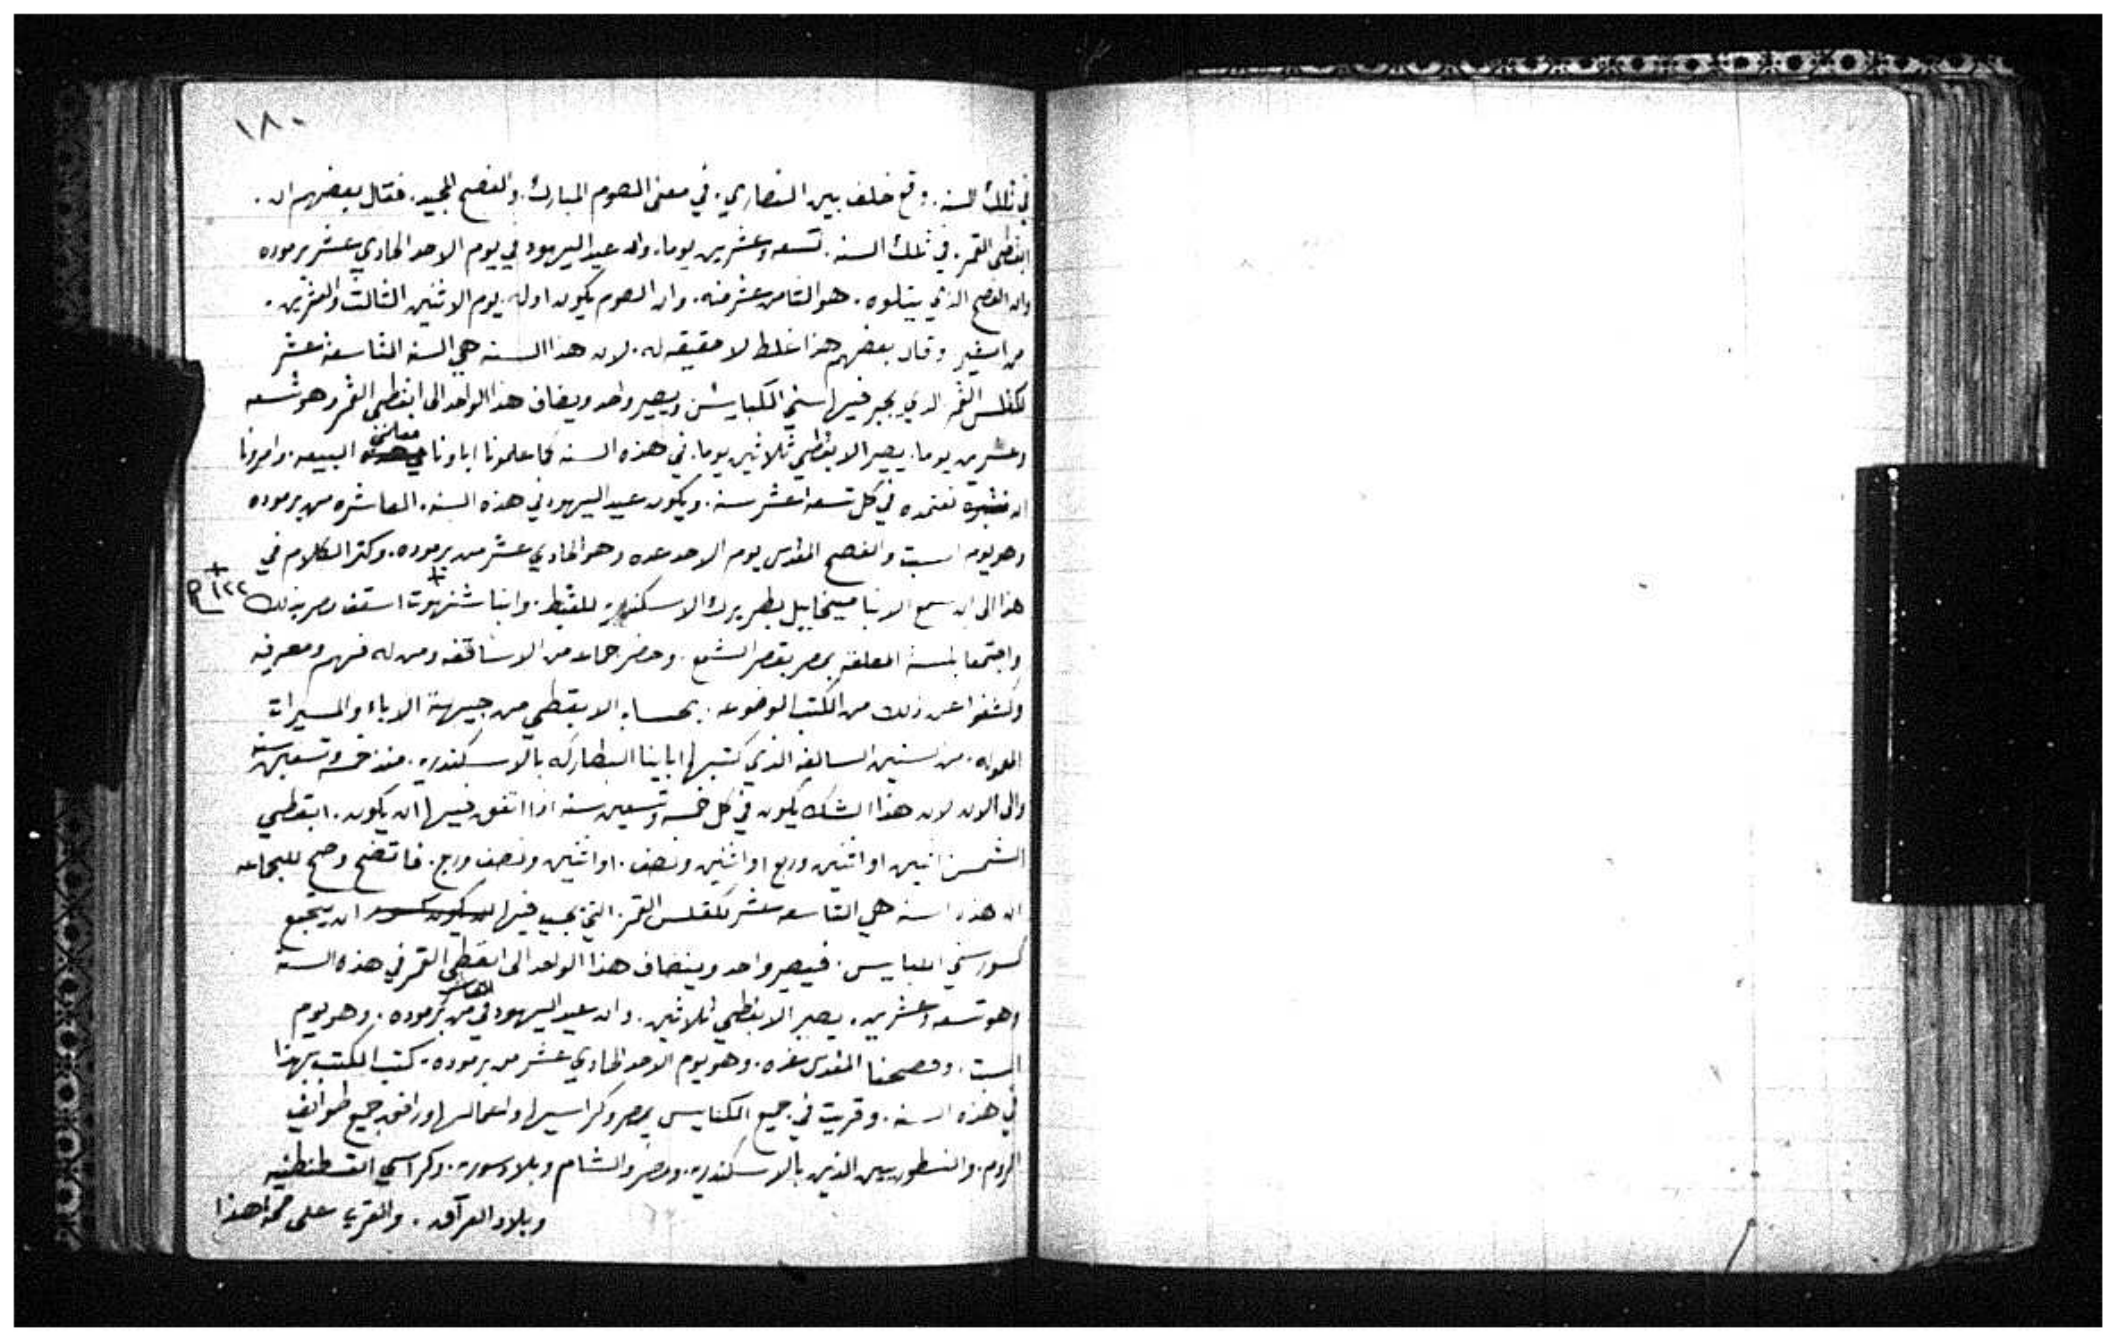 ١٨٠
في تلك السنه . وقع خلف بين النصاري . في معني الصوم المبارك . والفصح المجيد . فقال بعضهم ان .
ابقطي القمر . في تلك السنه . تسعه وعشرين يوما . وان عيد اليهود في يوم الاحد الحادي عشر برموده
وان الفصح الذي يتلوه . هو الثامن عشر منه . وان الصوم يكون اوله . يوم الاثنين الثالث والعشرين .
من امشير وقال بعضهم هذا غلط لا حقيقه له . لان هذا السنه هي السنه التاسعة عشر
القمر الدي يجبر فيها سني الكبايس ويصير واحد ويضاف هذا الواحد الى ابقطي القمر وهو تسعه
وعشرين يوما . يصير الابقطي ثلاثين يوما . في هذه السنه كما علمونا اباونا معلمي البيعه . وامرونا
ان نعتمده في كل تسعة عشر سنه . ويكون عيد اليهود في هذه السنه . العاشره من برموده
وهو يوم السبت والفصح المقدس يوم الاحد غده وهو الحادي عشر من برموده . وكثر الكلام في
هذا الى ان سمع الانبا ميخاييل بطريرك الاسكندريه للقبط . وانبا شنهوت اسقف مصر بذلك ١٢٢
واجتمعا المعلقه بمصر بقصر الشمع . وحضر جماعه من الاساقفه ومن له فهم ومعرفه
وكشفوا عن ذلك من الكتب الموضوعه . بحساب الابقطي من جيهة الاباء والسيرات
المعموله . من السنين السالفه الذي كتبها اباينا البطاركه بالاسكندريه . منذ خمسه وتسعين سنه
والى الان لان هذا الشك يكون في كل خمسه وتسعين سنه اذا اتفق فيها ان يكون . ابقطي
الشمس اثنين او اثنين وربع او اثنين ونصف . او اثنين ونصف وربع . فاتضح وصح للجماعه
ان هذه السنه هي التاسعه عشر القمر . التي يجب فيها ان يتجمع
كسور سني الكبايس . فيصير واحد وينضاف هذا الواحد الى ابقطي القمر في هذه السنة
وهو تسعه وعشرين . يصير الابقطي ثلاثين . وان عيد اليهود في العاشر من برموده . وهو يوم
السبت . وفصحنا المقدس غده . وهو يوم الاحد الحادي عشر من برموده . كتب الكتب بهذا
في هذه السنه . وقريت في جميع الكنايس بمصر وكراسيها واعمالها ورافق جميع طوايف
الروم . والنسطوريين الذين بالاسكندريه . ومصر والشام وبلاد سوريه . وكراسي القسطنطنيه
وبلاد العراق . والقريب على هذا